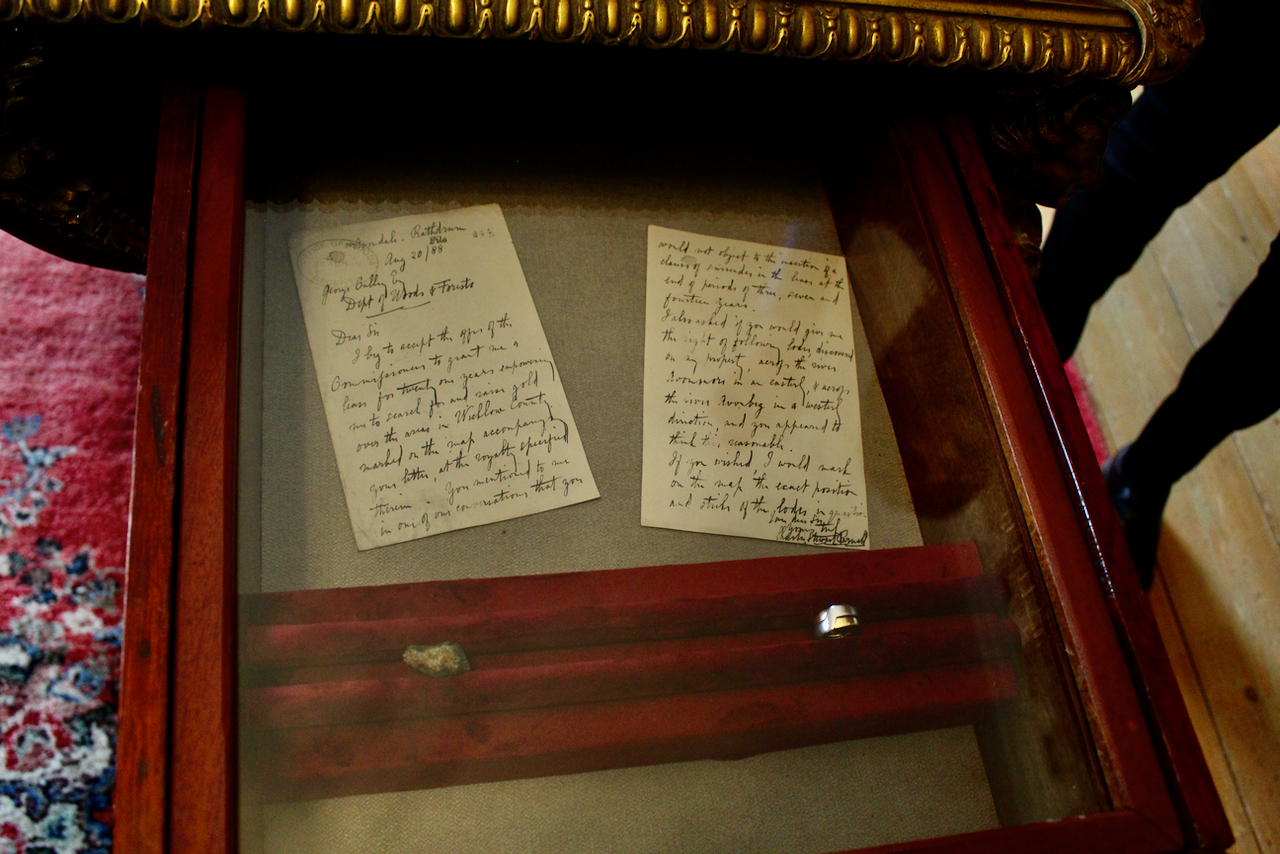 Avondale. Rathdrum
File
Aug 20/88
George Culley Esq
Dept of Woods & Forests
Dear Sir
I beg to accept the offer of the
Commissioners to grant me a
lease for twenty one years empowering
me to search for and raise gold
over the areas in Wicklow County
marked on the map accompanying
your letter, at the royalty specified
therein. You mentioned to me
in one of our conversations that you
would not object to the insertion of a
clause of surrender in the lease at the
end of periods of three, seven and
fourteen years.
I also asked if you would give me
the right of following lodes, discovered
on my property, across the river
Avonmore in an easterly, & across
the river Avonbeg in a westerly
direction, and you appeared to
think this reasonable.
If you wished I would mark
on the map the exact position
and strike of the lodes in question
I am dear Sir
yours truly
Charles Stewart Parnell